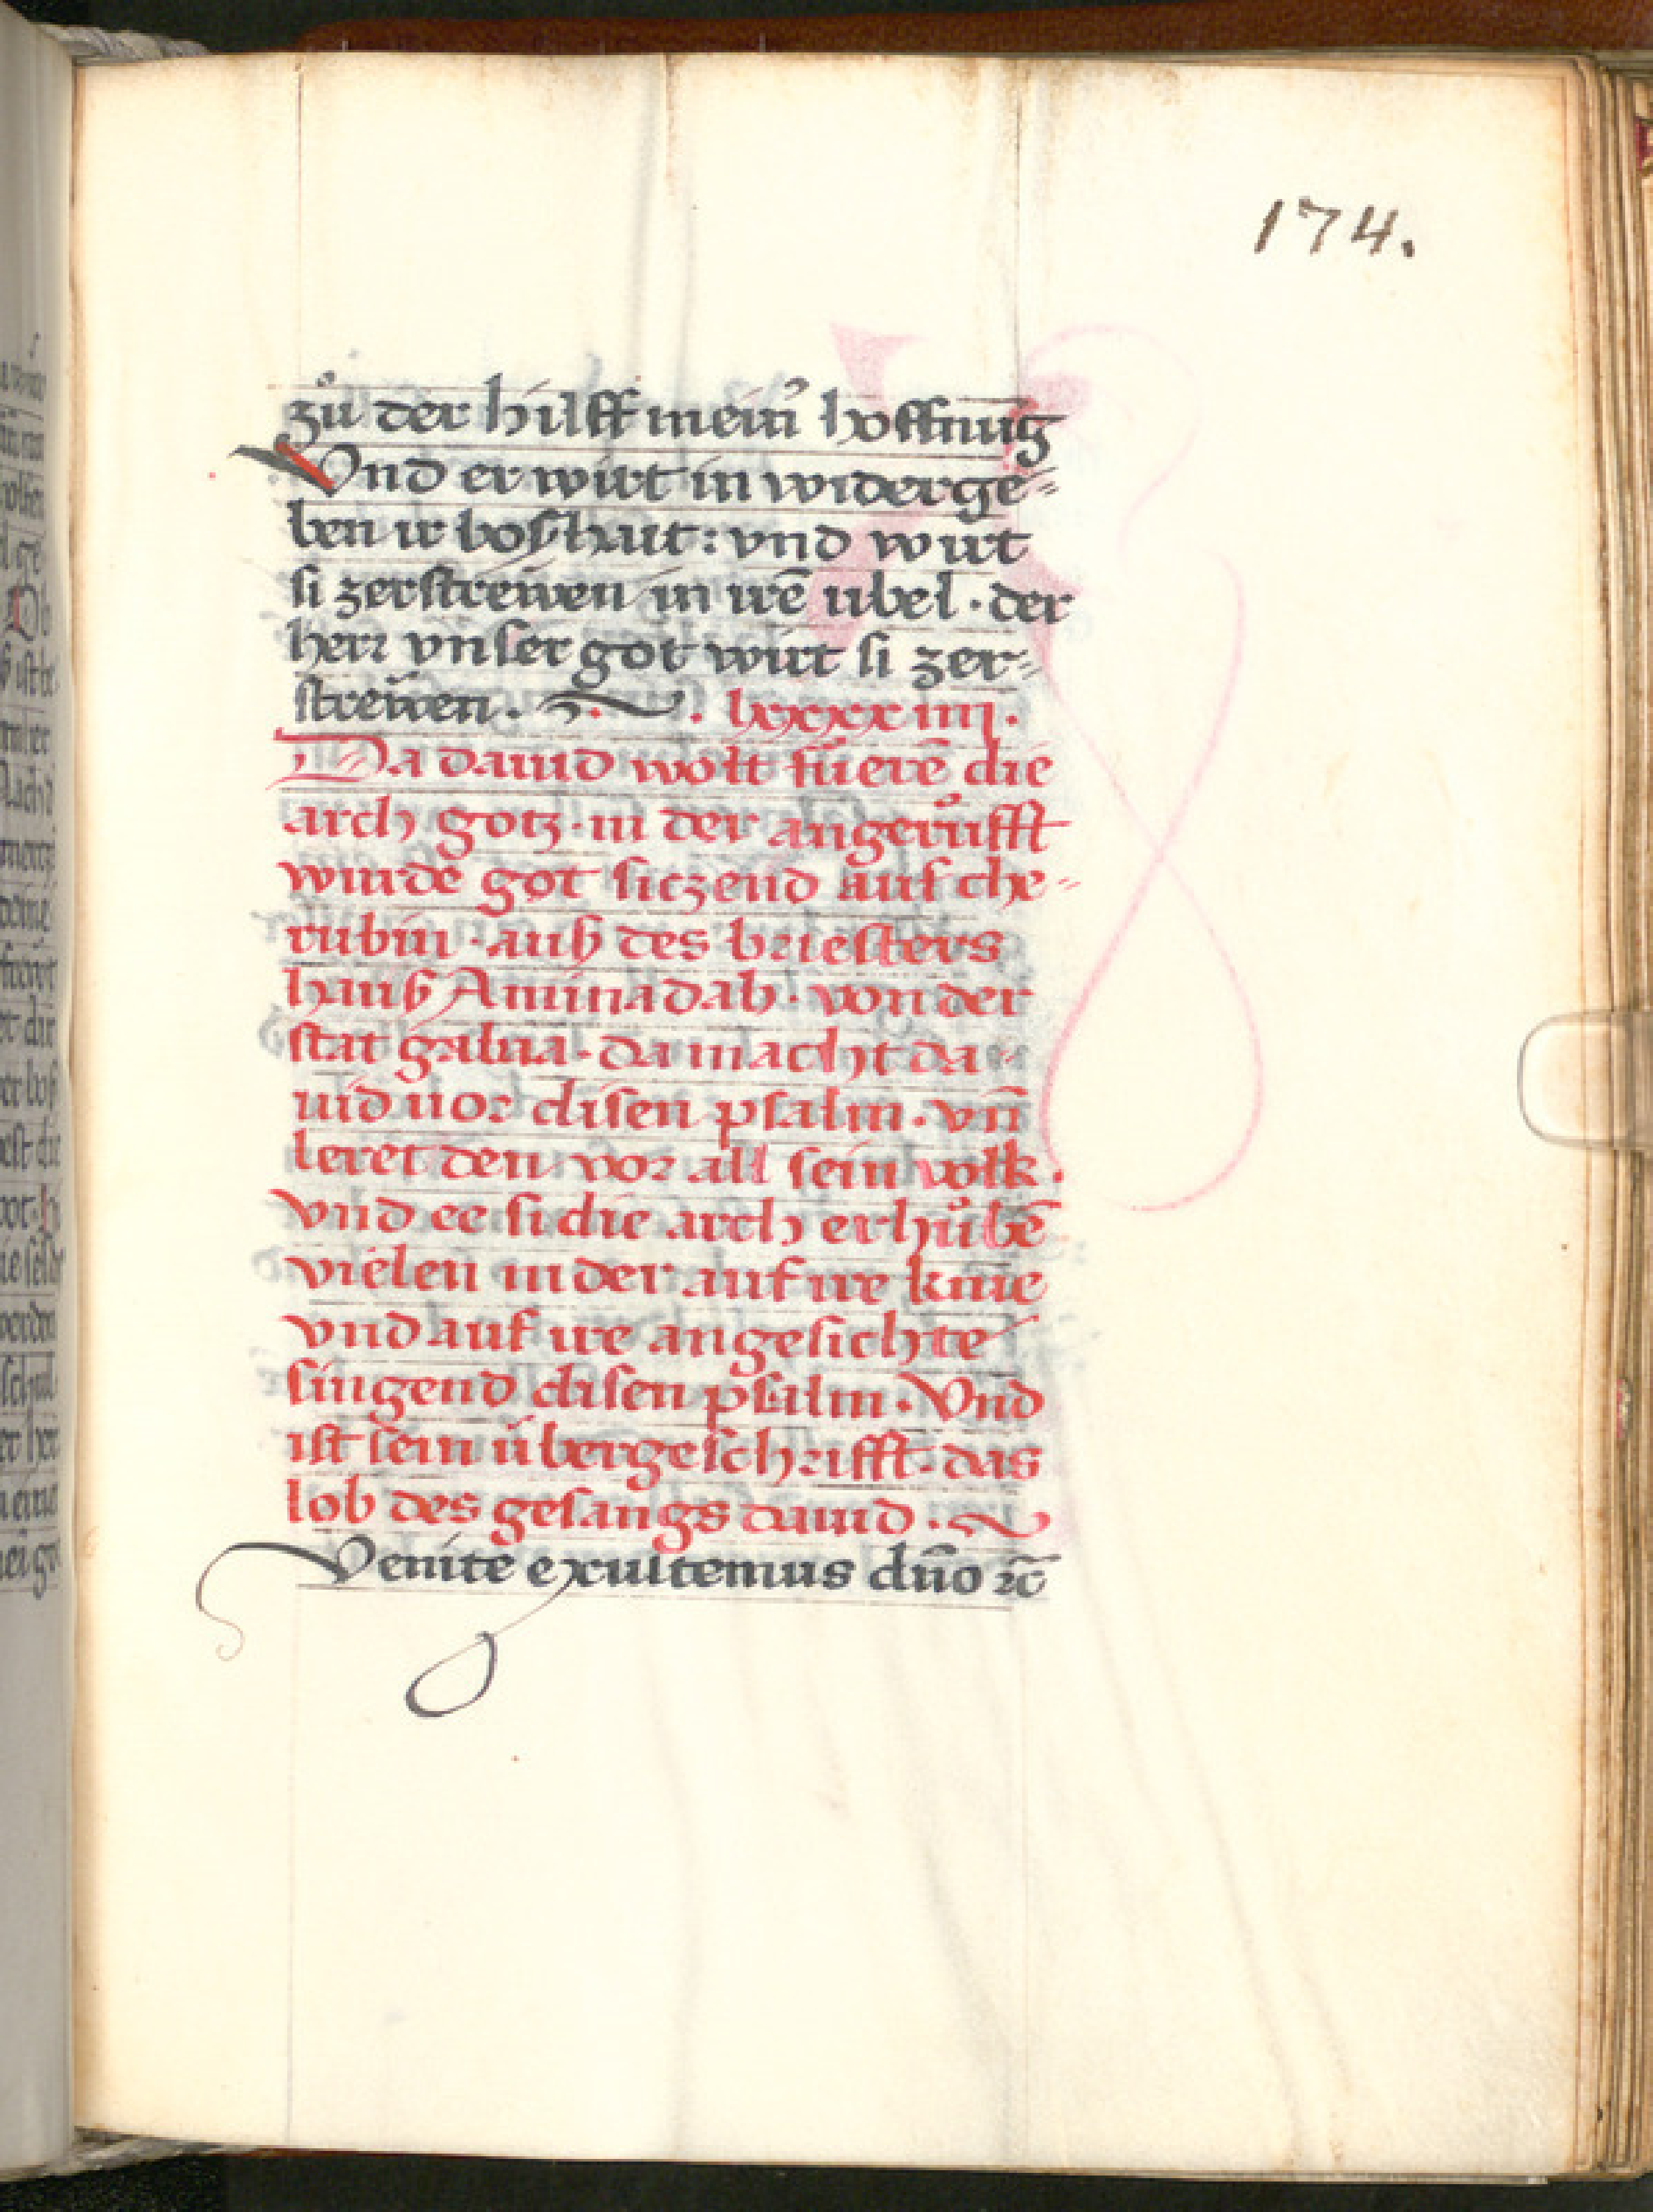 174.
zů der hilff mein᷑ hoffnug
Vnd er wirt in widerge⸗
ben ir boßhait: vnd wirt
si zerströwen in irē ubel · der
herr vnser got wirt si zer⸗
ströwen. lxxxxiiij.
Da dauid wolt füerē die
arch gotz · in der angerůfft
wurde got siczend auf che⸗
rubin · auß des briesters
hauß Aminadab · von der
stat gabaa · da macht da⸗
uid uor disen psalm · vn̄
leret den vor all sein volk ·
vnd ee si die arch erhůbē
vielen in der auf ire knie
vnd auf ire angesichte
singend disen psalm · Vnd
ist sein übergeschrifft · das
lob des gesangs dauid ·
Venite exultemus dn̄o ꝛc̄